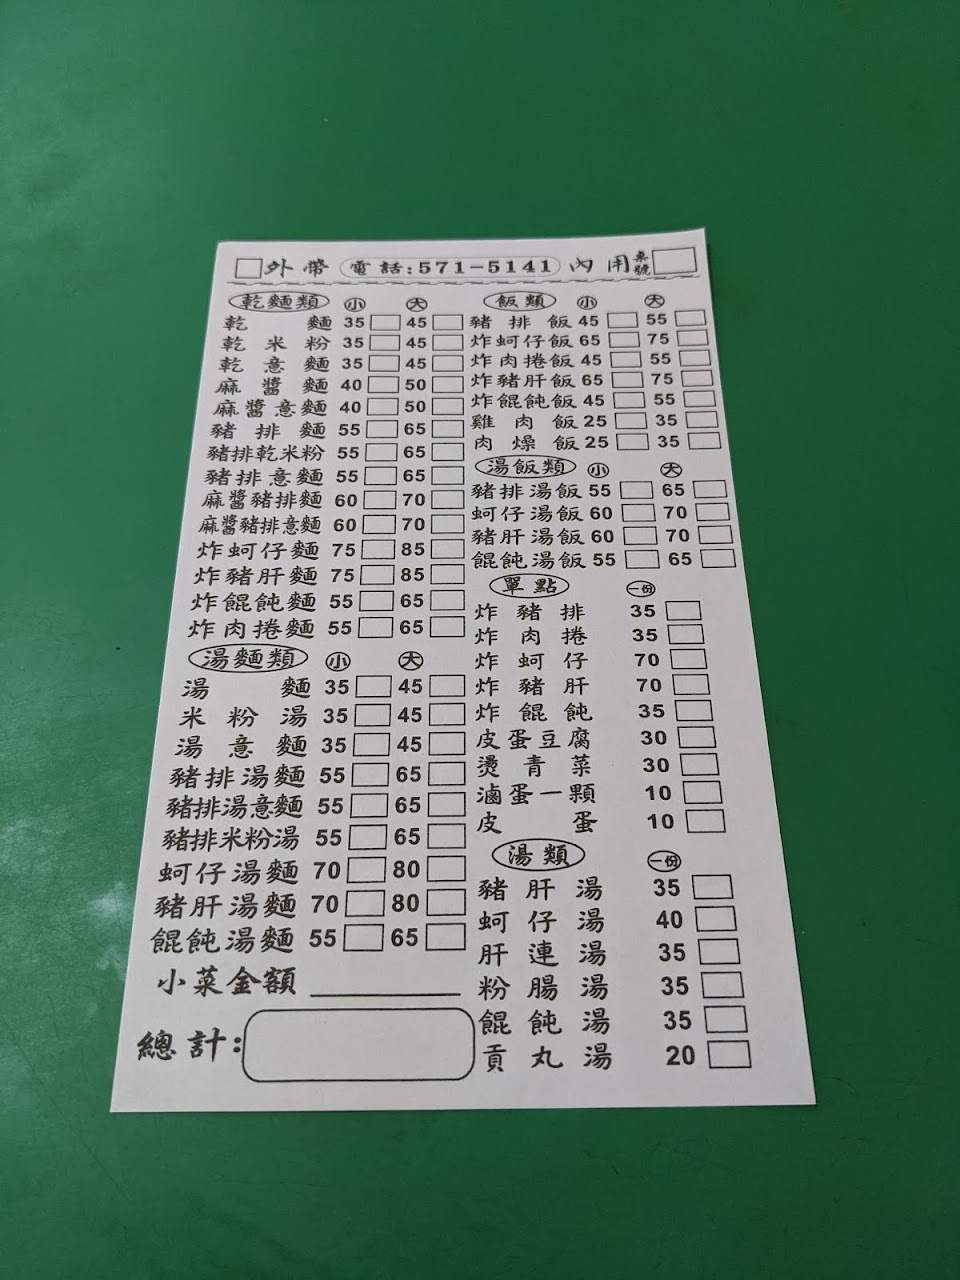 外帶 電話:571-5141 內用 桌號
乾麵類 小 大
乾麵 35 45
乾米粉 35 45
乾意麵 35 45
麻醬麵 40 50
麻醬意麵 40 50
豬排麵 55 65
豬排乾米粉 55 65
豬排意麵 55 65
麻醬豬排麵 60 70
麻醬豬排意麵 60 70
炸蚵仔麵 75 85
炸豬肝麵 75 85
炸餛飩麵 55 65
炸肉捲麵 55 65
湯麵類 小 大
湯麵 35 45
米粉湯 35 45
湯意麵 35 45
豬排湯麵 55 65
豬排湯意麵 55 65
豬排米粉湯 55 65
蚵仔湯麵 70 80
豬肝湯麵 70 80
餛飩湯麵 55 65
小菜金額
總計:
飯類 小 大
豬排飯 45 55
炸蚵仔飯 65 75
炸肉捲飯 45 55
炸豬肝飯 65 75
炸餛飩飯 45 55
雞肉飯 25 35
肉燥飯 25 35
湯飯類 小 大
豬排湯飯 55 65
蚵仔湯飯 60 70
豬肝湯飯 60 70
餛飩湯飯 55 65
單點 一份
炸豬排 35
炸肉捲 35
炸蚵仔 70
炸豬肝 70
炸餛飩 35
皮蛋豆腐 30
燙青菜 30
滷蛋一顆 10
皮蛋 10
湯類 一份
豬肝湯 35
蚵仔湯 40
肝連湯 35
粉腸湯 35
餛飩湯 35
貢丸湯 20